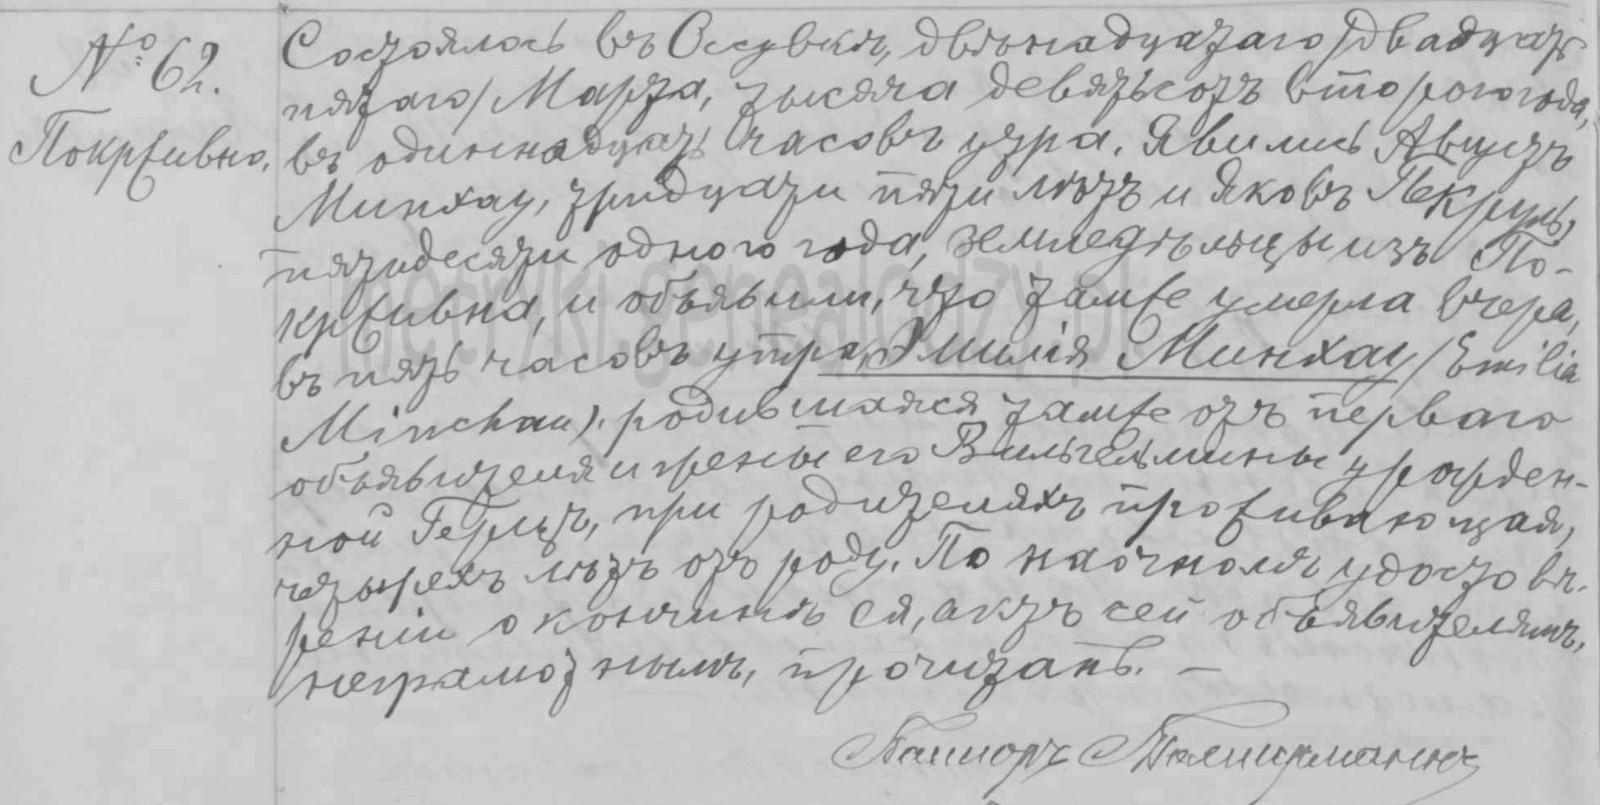 № 62.
Покрживно.
Состоялось въ Оссувкѣ, двѣнадцатаго /двадцать
пятаго/ Марта, тысяча девятьсотъ второго года,
въ одиннадцать часовъ утра. Явились Августъ
Минхау, тридцати пяти лѣтъ и Яковъ Пекруль,
пятидесяти одного года, земледѣльцы изъ По-
крживна, и объявили, что тамже умерла вчера,
въ пять часовъ утра, Эмилія Минхау /Emilia
Minchau). родившаяся тамже отъ перваго
объявителя и жены его Вильгельмины урожден-
ной Герцъ, при родителяхъ проживающая,
четырехъ лѣтъ отъ роду. По наочномъ удостовѣ-
реніи о кончинѣ ея, актъ сей объявителямъ,
неграмотнымъ, прочитанъ. —
Пасторъ
metryki.genealodzy.pl